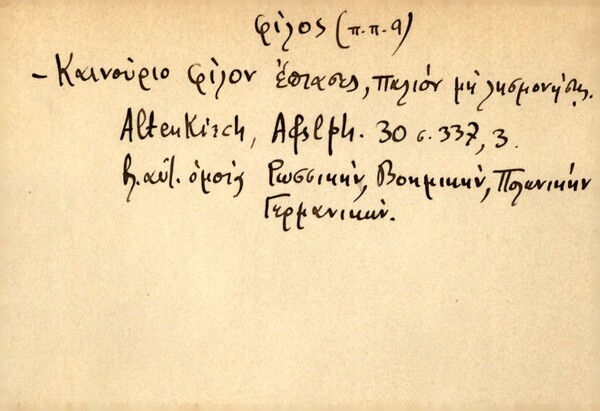 φίλος (π.π. 9)
– Καινούριο φίλον έπιασες, παλιόν μη λησμονήσης.
Altenkirch, Afslph. 30 σ. 337, 3.
β. αὐτ. ὁμοίας Ρωσσικήν, Βοημικήν, Πολωνικήν
Γερμανικήν.